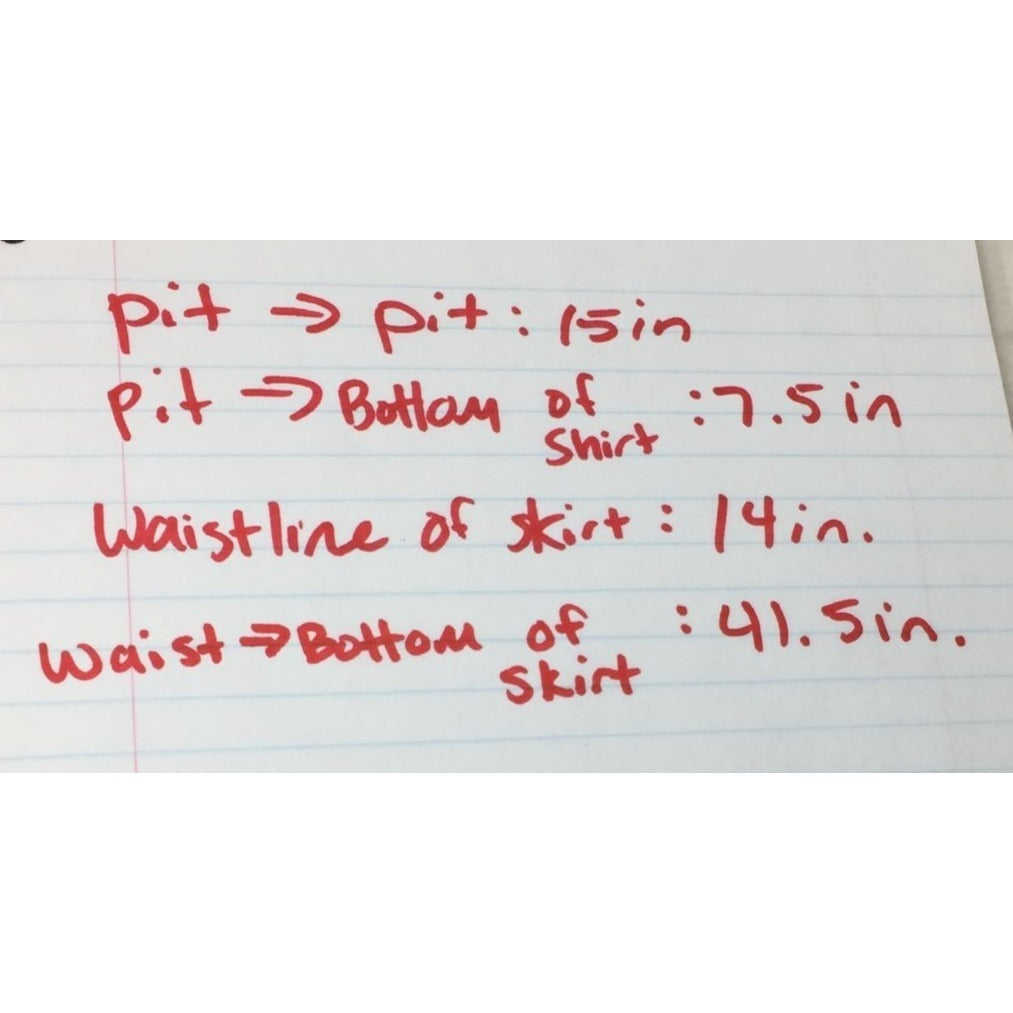 pit → pit: 15in
pit → Bottom of shirt : 7.5 in
Waistline of skirt : 14in.
Waist → Bottom of skirt : 41.5in.